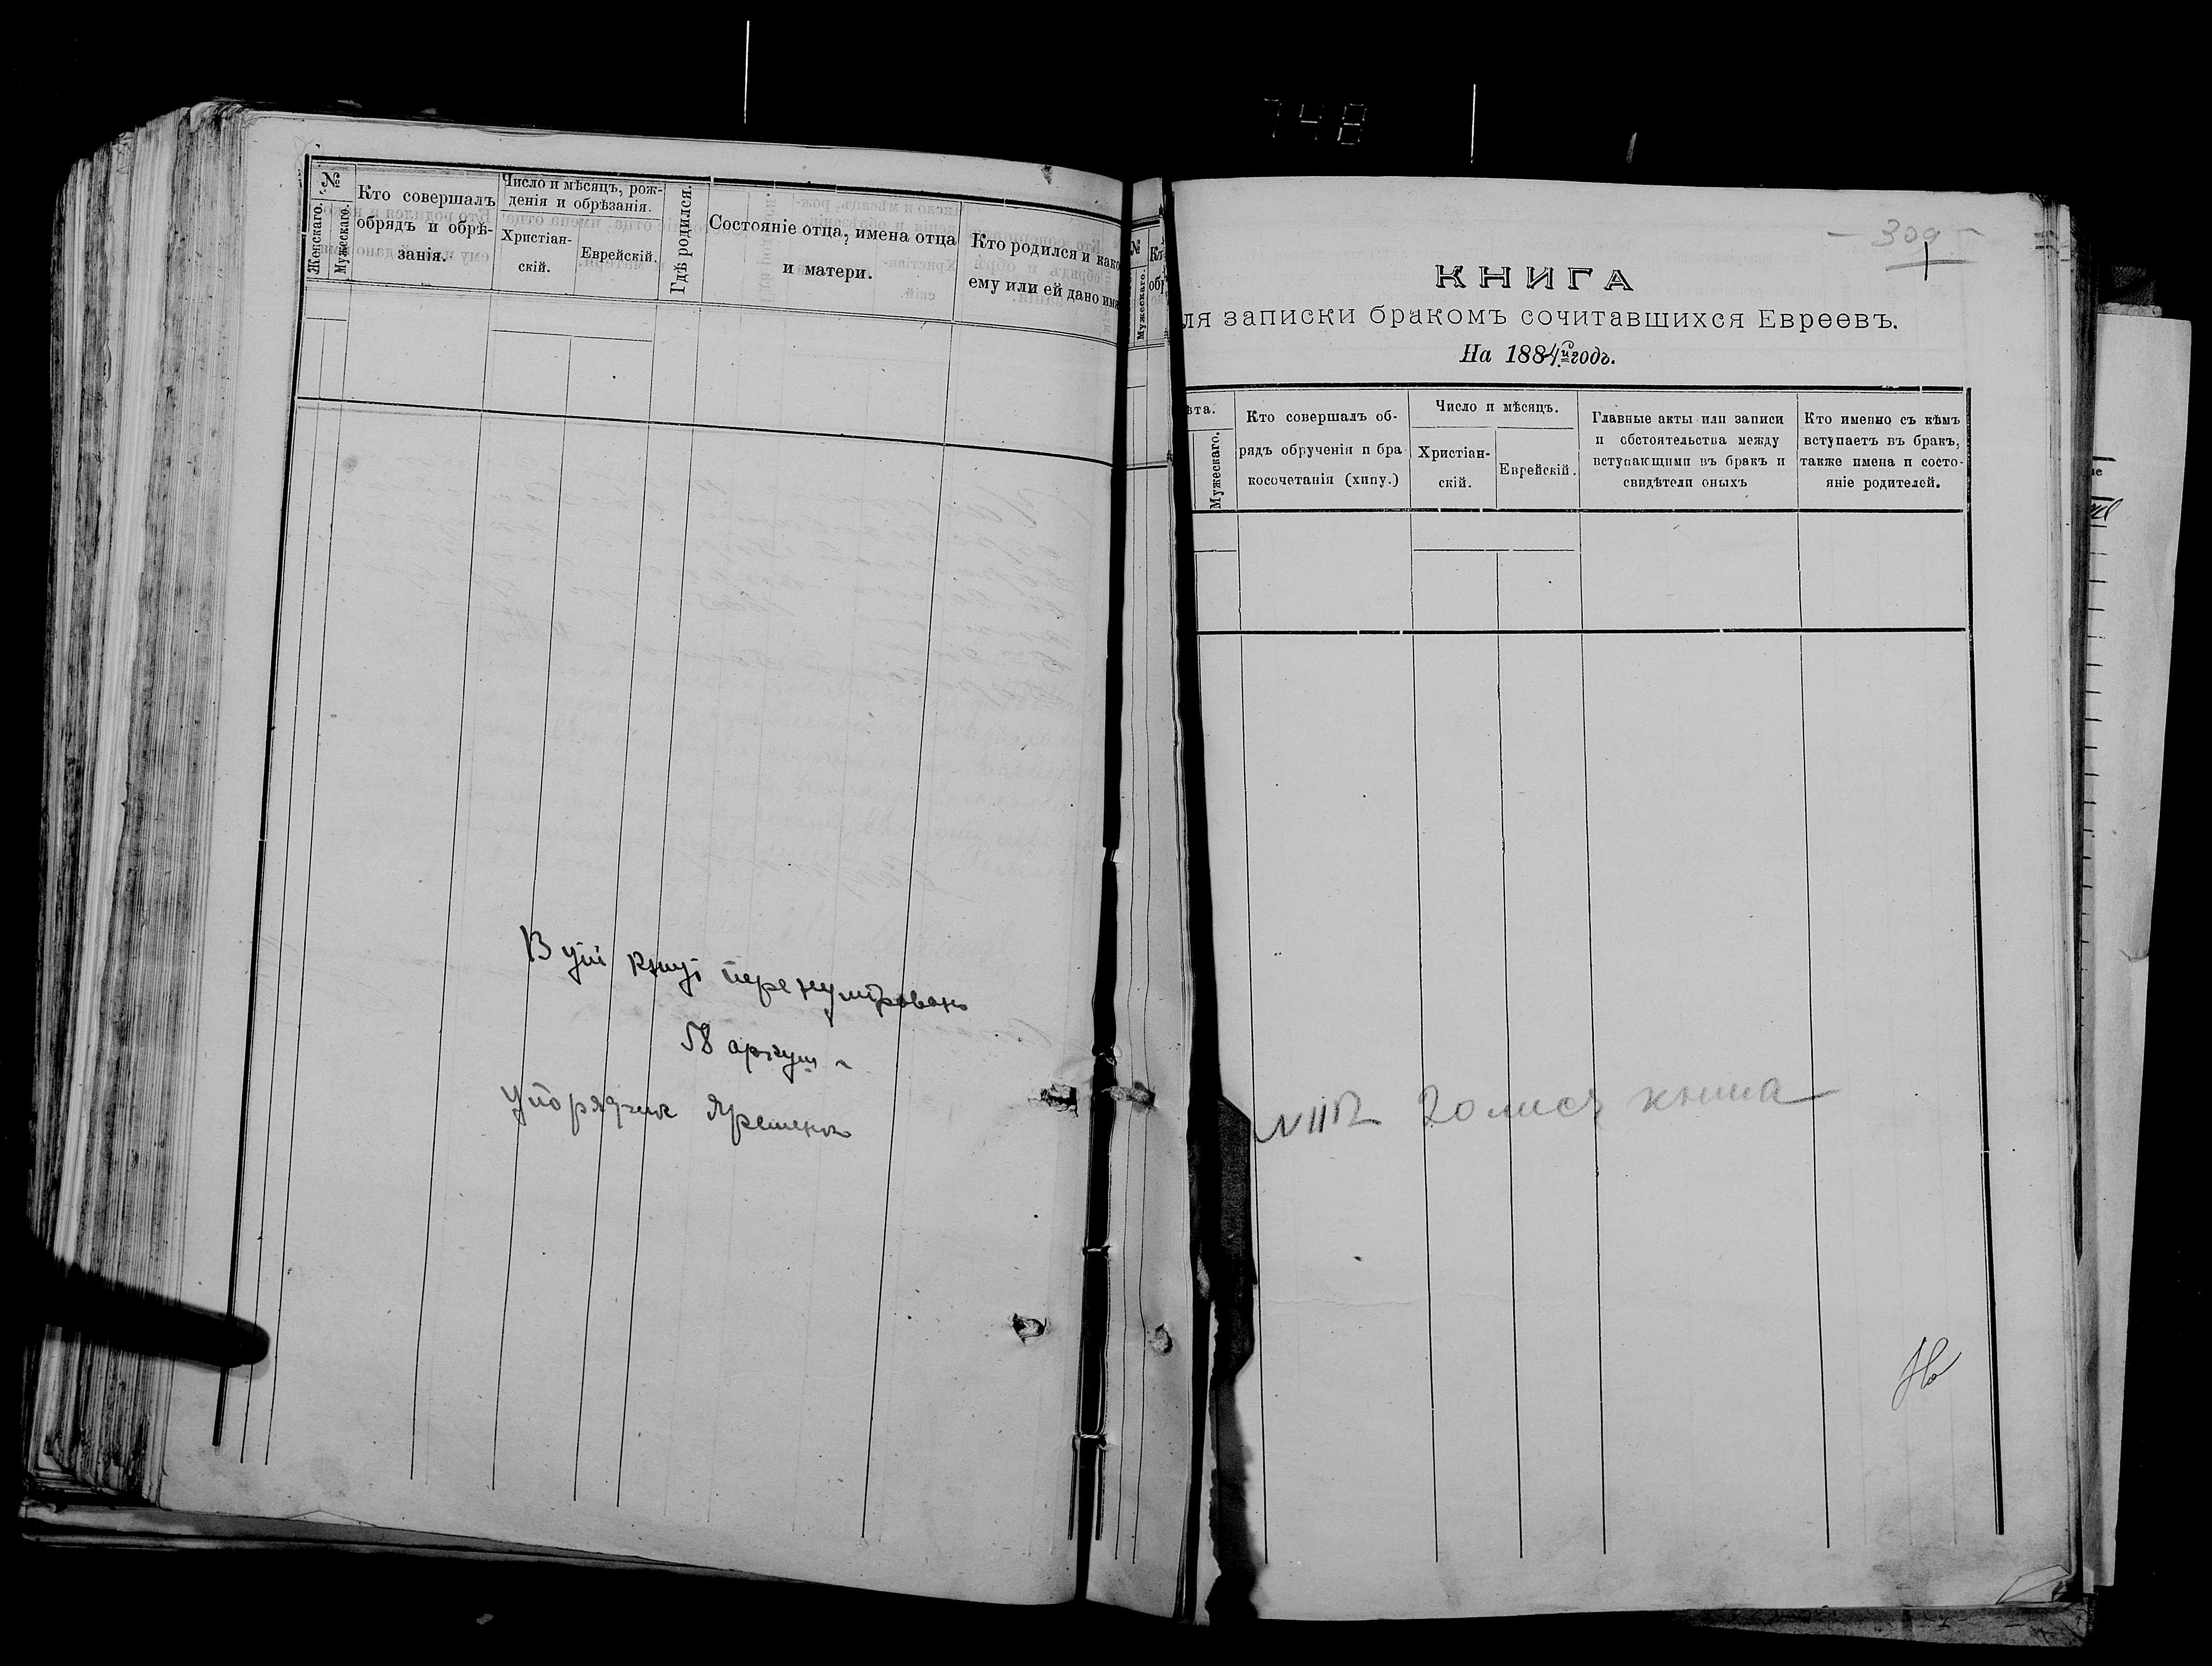 748
№
Женскаго.
Мужескаго.
Кто совершалъ
обрядъ и обрѣ-
занія.
Число и мѣсяцъ, рож-
денія и обрѣзанія.
Христіан-
скій.
Еврейскій.
Гдѣ родился.
Состояніе отца, имена отца
и матери.
Кто родился и како
ему или ей дано имя
В цій книзі перенумеровано
58 аркуш
Упорядчик Яременко
№
Мужескаго.
Кт
обр
309
1
КНИГА
ля записки бракомъ сочитавшихся Евреевъ.
На 1884й годъ.
ѣта.
Мужескаго.
Кто совершалъ об-
рядъ обрученія и бра
косочетанія (хипу.)
Число и мѣсяцъ.
Христіан-
скій.
Еврейскій.
Главные акты или записи
и обстоятельства между
вступающими въ бракъ и
свидѣтели оныхъ
Кто именно съ кѣмъ
вступаетъ въ бракъ,
также имена и состо-
яніе родителей.
книга